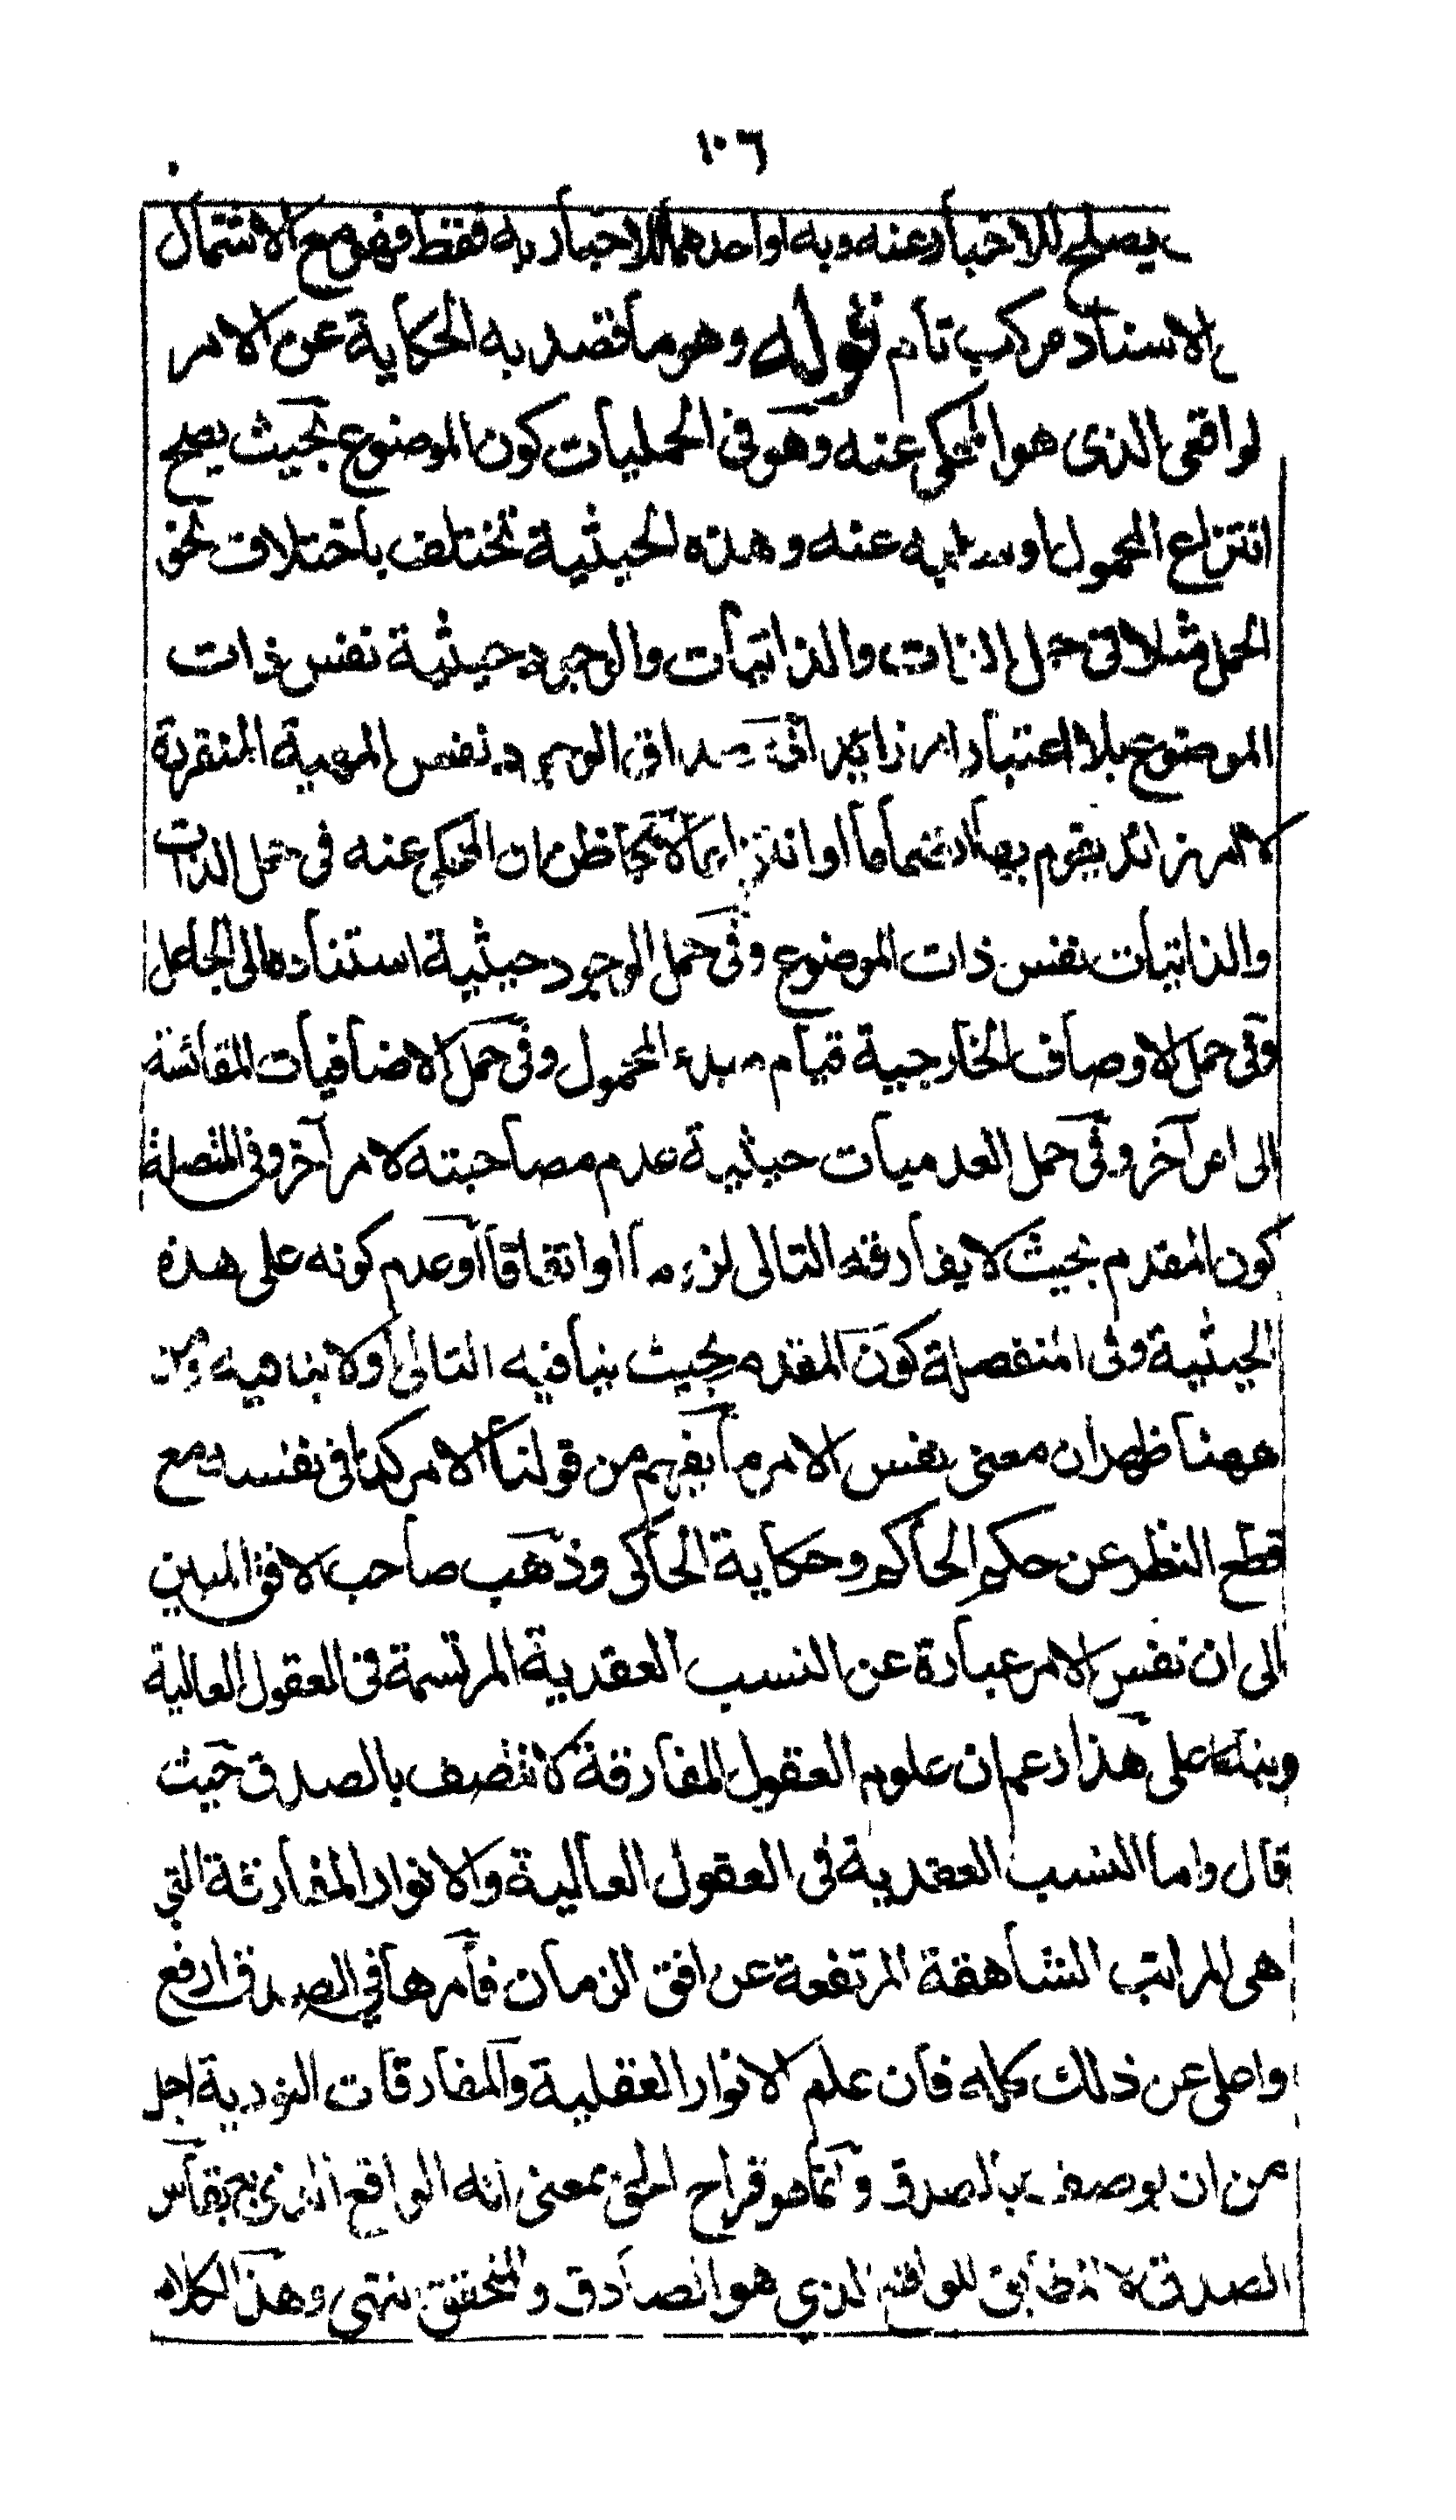 ١٠٦
يصلح للاخبار عنه وبه او احدهما للاخبار به فقط فهو مع الاشتمال
الاسناد مركب تام قوله وهو ما قصد به الحكاية عن الامر
لواقعى الذى هو المحكى عنه وهو فى الحمليات كون الموضوع بحيث يصح
انتزاع المحمول او سلبه عنه وهذه الحيثية تختلف باختلاف نحو
الحمل مثلا فى حمل الذات والذاتيات والوجود حيثية نفس ذات
الموضوع بلا اعتبار امر زايد اذ مصداق الوجود نفس المهية المتقررة
لا امر زائد يقوم بها انضماما او انتزاعا لا يجاظن ان المحكى عنه فى حمل الذات
والذاتيات نفس ذات الموضوع وفى حمل الوجود حيثية استناده الى الجاعل
وفى حمل الاوصاف الخارجية قيام مبدء المحمول وفى حمل الاضافيات المقائسة
الى امر آخر وفى حمل العدميات حيثية عدم مصاحبته لامر آخر وفى المتصلة
كون المقدم بحيث لا يفارقه التالى لزوما او اتفاقا او عدم كونه على هذه
الحيثية وفى المنفصلة كون المقدم بحيث ينافيه التالى او لا ينافيه ومن
ههنا ظهر ان معنى نفس الامر ما يفهم من قولنا الامر كذا فى نفسه مع
قطع النظر عن حكم الحاكم وحكاية الحاكى وذهب صاحب الافق المبين
الى ان نفس الامر عبارة عن النسب العقدية المرتسمة فى العقول العالية
وبناء على هذا زعم ان علوم العقول المفارقة لا تتصف بالصدق حيث
قال واما النسب العقدية فى العقول العالية والانوار المفارقة التى
هى المراتب الشاهقة المرتفعة عن افق الزمان فامرها فى الصدق ارفع
واعلى عن ذلك كله فان علم الانوار العقلية والمفارقات النورية اجل
من ان يوصف بالصدق وانما هو قراح الحق بمعنى انه الواقع الذى به يقاس
الصدق لا المطابق للواقع الذى هو الصادق والمتحقق انتهى وهذا الكلام